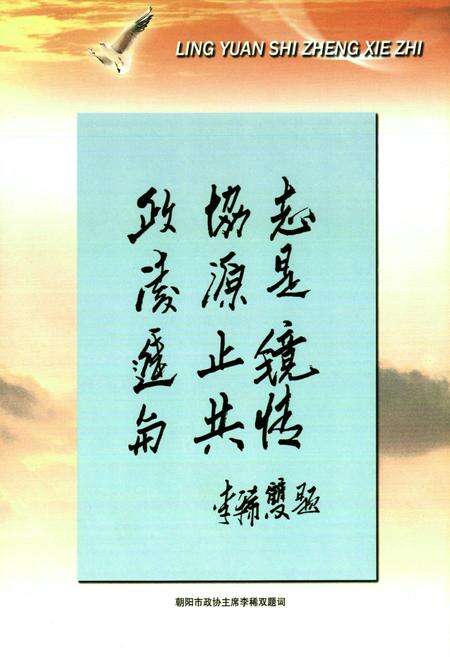 LING YUAN SHI ZHENG XIE ZHI
政協志
凌源是
止镜
共情
李稀雙题
朝阳市政协主席李稀双题词